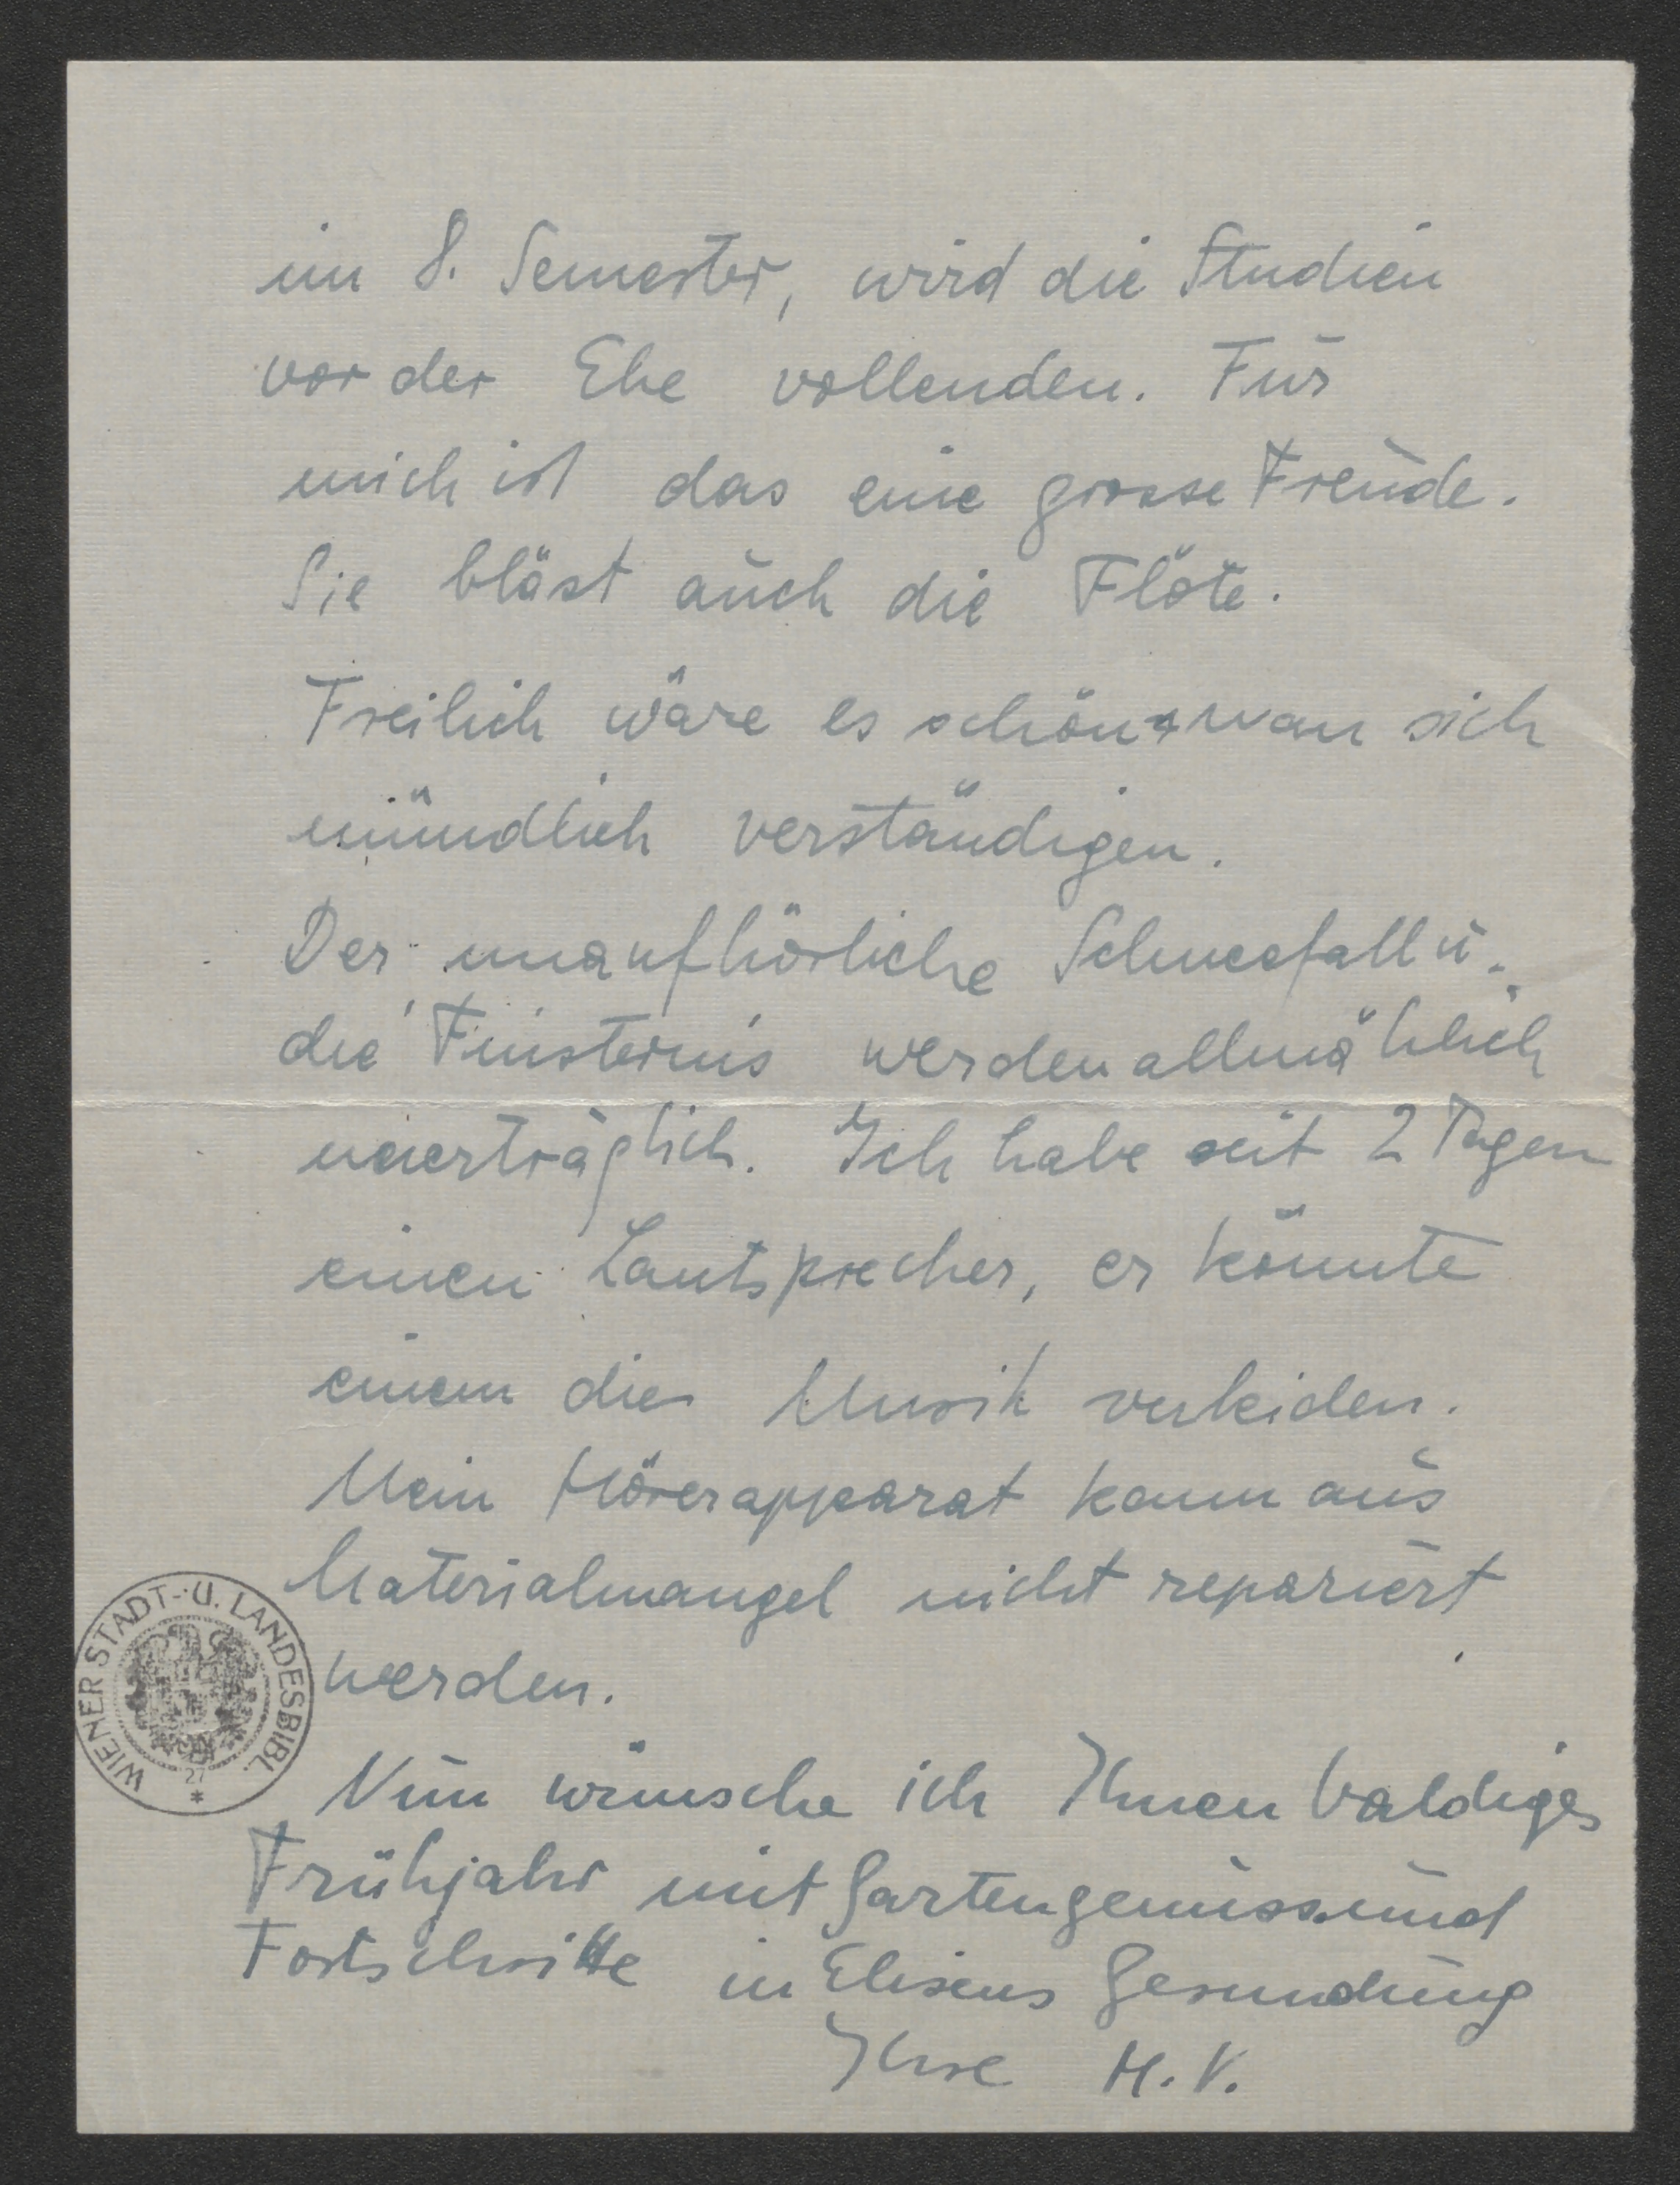 im 8. Semester, wird die Studien
vor der Ehe vollenden. Für
mich ist das eine grosse Freude.
Sie bläst auch die Flöte.
Freilich wäre es schön man sich
mündlich verständigen.
Der unaufhörliche Schneefall u.
die Finsternis werden allmählich
unerträglich. Ich habe seit 2 Tagen
einen Lautsprecher, er könnte
einem die Musik verleiden.
Mein Hörerapparat kann aus
Materialmangel nicht repariert
werden.
Nun wünsche ich Ihnen baldiges
Frühjahr mit Gartengenuss und
Fortschritte in Elisens Gesundung
Ihre M. V.
WIENER STADT- U. LANDESBIBL.
27
*